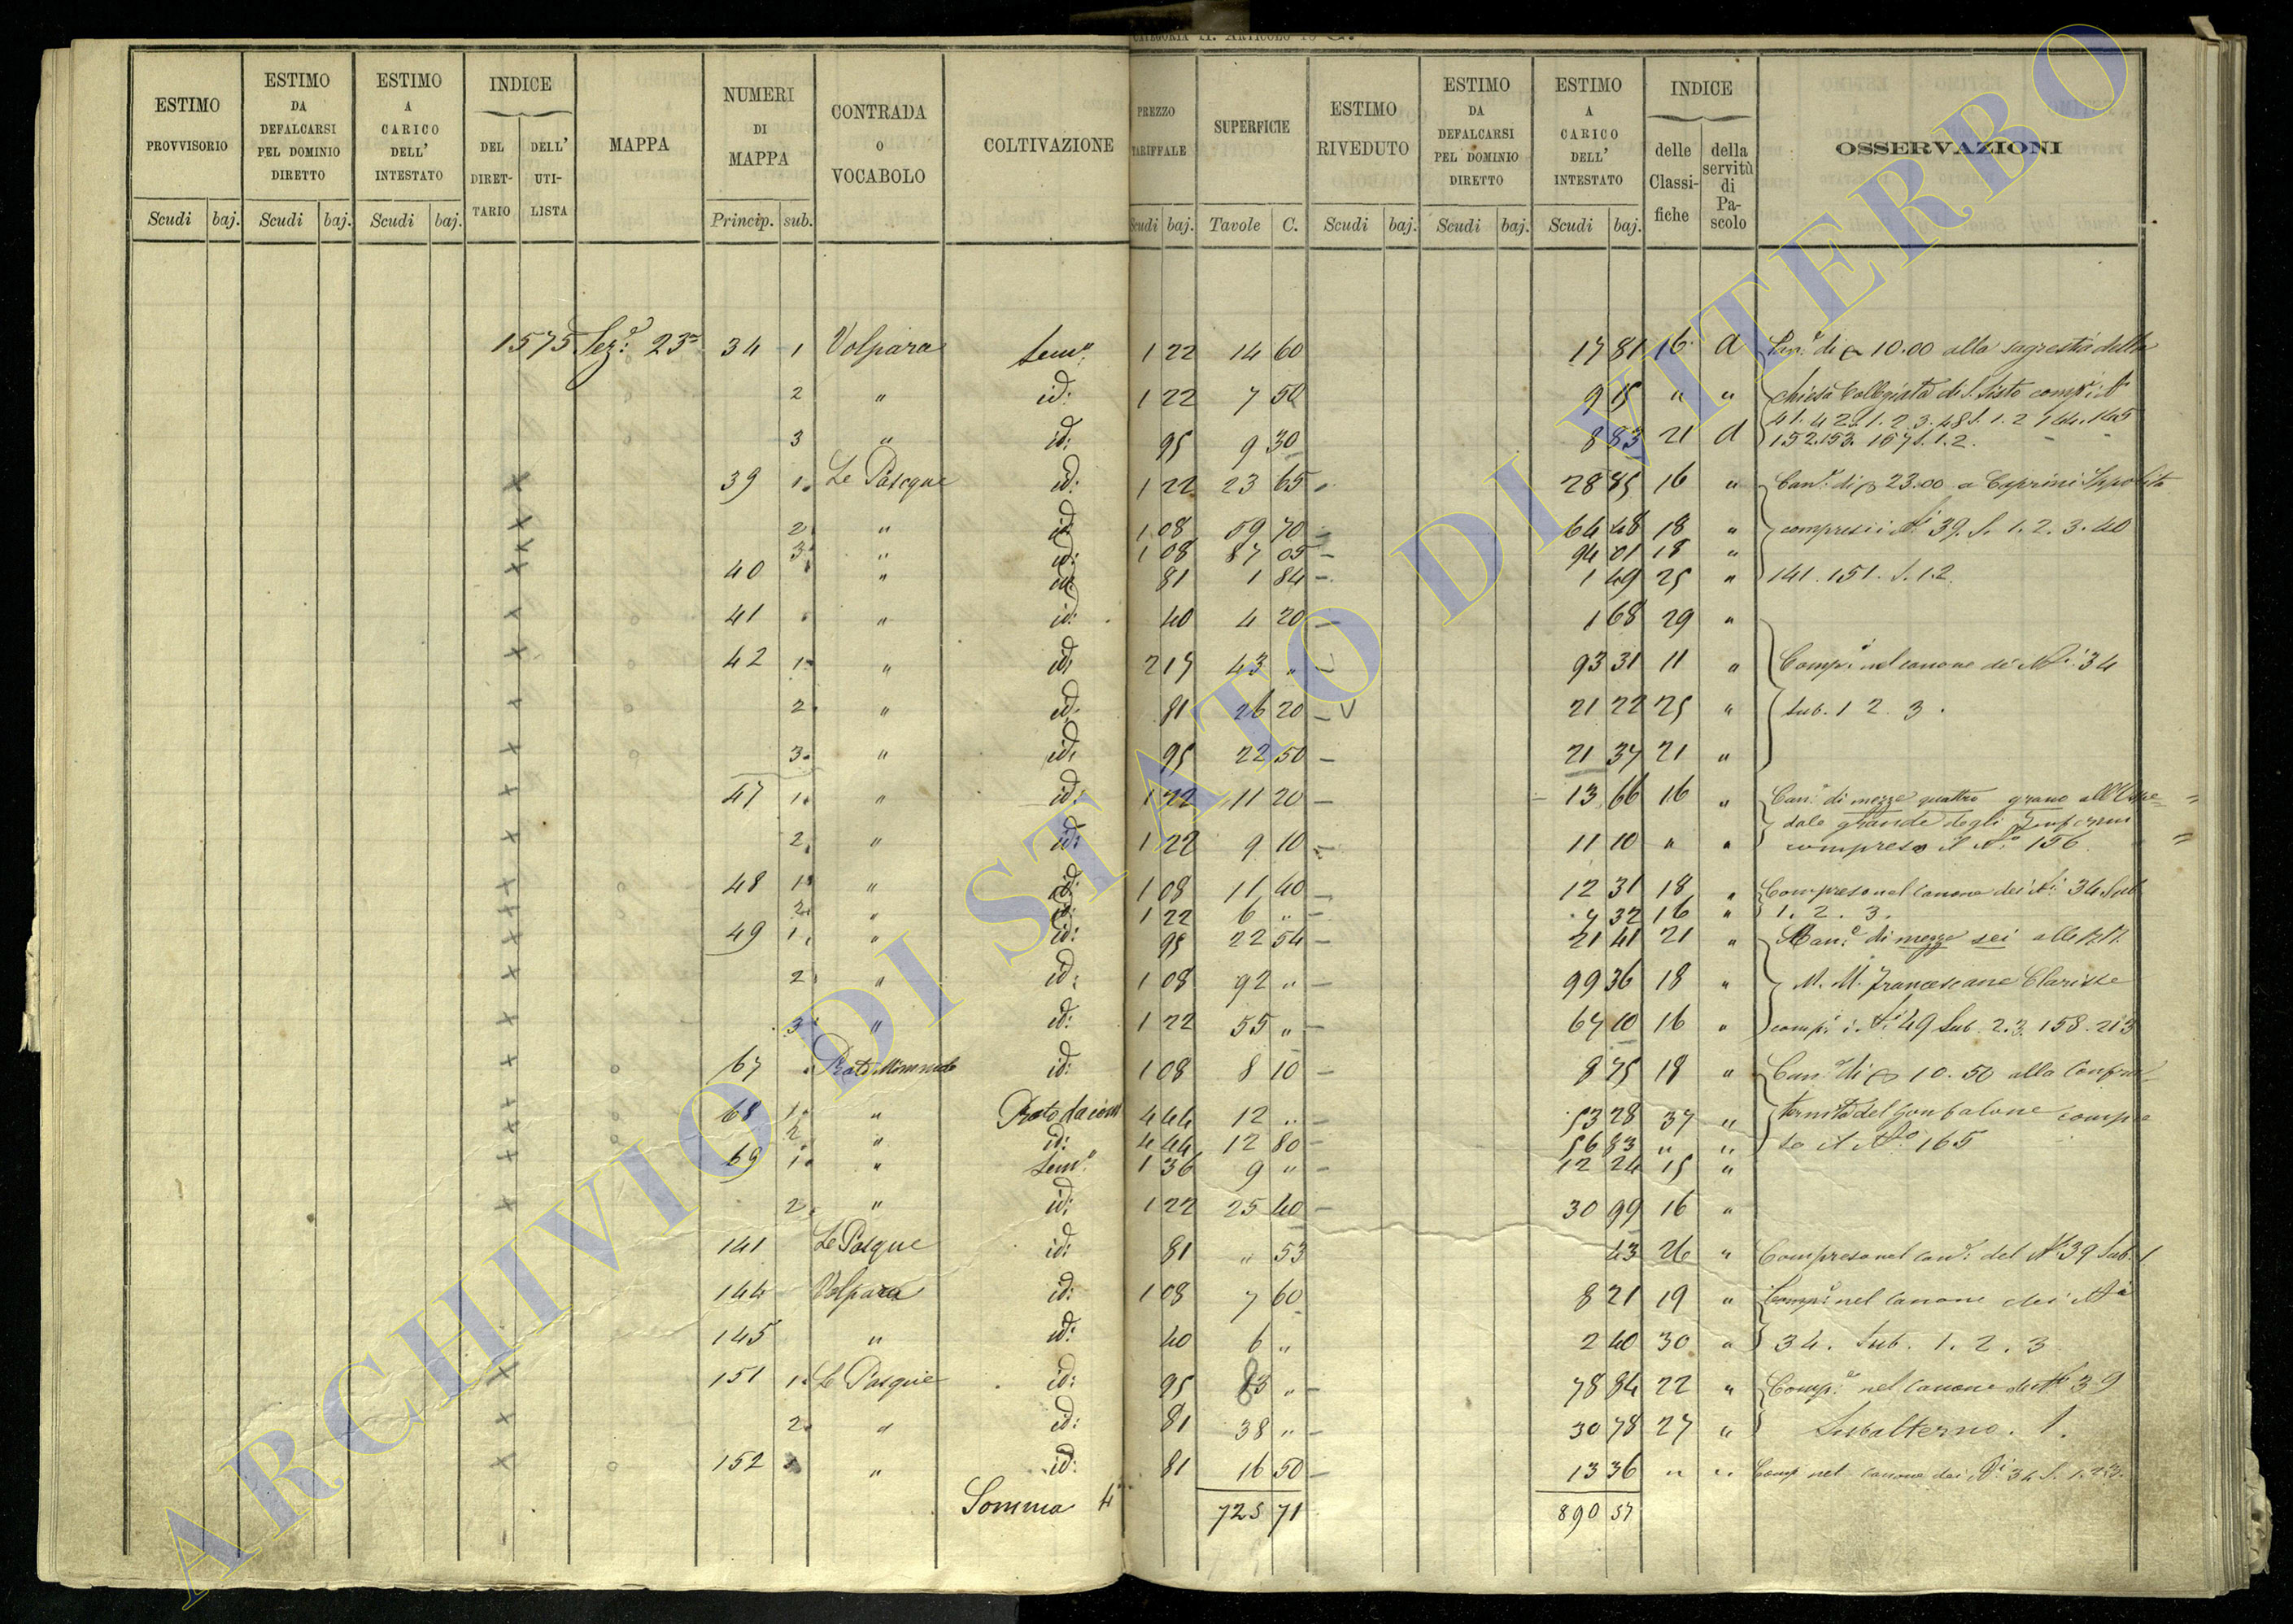 CATEGORIA A. ARTICOLO
ESTIMO PROVVISORIO Scudi baj.
ESTIMO DA DEFALCARSI PEL DOMINIO DIRETTO Scudi baj.
ESTIMO A CARICO DELL' INTESTATO Scudi baj.
INDICE DEL DIRETTARIO DELL' UTILISTA
MAPPA
NUMERI DI MAPPA Princip. sub.
CONTRADA O VOCABOLO
COLTIVAZIONE
PREZZO TARIFFALE Scudi baj.
SUPERFICIE Tavole C.
ESTIMO RIVEDUTO Scudi baj.
ESTIMO DA DEFALCARSI PEL DOMINIO DIRETTO Scudi baj.
ESTIMO A CARICO DELL' INTESTATO Scudi baj.
INDICE delle Classifiche della servitù di Pascolo
OSSERVAZIONI
1575 Sez: 23ª 34 1 Volpara Semº: 1 22 14 60 17 81 16 a Canº di 10.00 alla sagrestia della
2 " id: 1 22 7 50 9 15 " " chiesa Collegiata di S. Sisto
3 " id: 95 9 30 8 83 21 a 41. 42 S. 1. 2. 3. 48 S. 1. 2 144. 145
152. 153. 157 S. 1. 2.
39 1. Le Pasque id: 1 22 23 65 28 85 16 " Canº: di 23.00 a Caprini Ippolita
2. " id: 1 08 59 70 64 48 18 " compresi i Nⁱ 39. S. 1. 2. 3. 40
3. " id: 1 08 87 05 94 01 18 "
40 " id: 81 1 84 1 49 25 " 141. 151. S. 1.2.
41 " id: 40 4 20 1 68 29 "
42 1. " id: 2 17 43 " 93 31 11 " Compº: nel canone dei Nⁱ: 34
2. " id: 81 26 20 21 22 25 " sub. 1 2. 3.
3. " id: 95 22 50 21 37 21 "
47 1. " id: 1 22 11 20 13 66 16 " Canº: di mezze quattro grano all'Ospe=
dale grande degli Infermi
2. " id: 1 22 9 10 11 10 " " compreso il Nº: 156.
48 1. " id: 1 08 11 40 12 31 18 " Compreso nel canone dei Nⁱ: 34 Sub
2. " id: 1 22 6 " 7 32 16 " 1. 2. 3.
49 1. " id: 95 22 54 21 41 21 " Canº: di mezze sei alle RR.
2. " id: 1 08 92 " 99 36 18 " M. M. Francescane Clarisse
3. " id: 1 22 55 " 67 10 16 " compⁱ: i Nⁱ: 49 Sub. 2. 3. 158. 213
67 " id: 1 08 8 10 8 75 18 " Canº: di 10.50 alla Confra=
68 1. " 4 44 12 " 53 28 37 " ternita del Gonfalone compre
2. " id: 4 44 12 80 56 83 " " so il Nº 165
69 1. " Semº: 1 36 9 " 12 24 15 "
2. " id: 1 22 25 40 30 99 16 "
141 Le Pasque id: 81 " 53 43 26 " Compreso nel canº: del Nº 39 Sub. 1
144 Volpara id: 1 08 7 60 8 21 19 " Compº: nel canone dei Nⁱ
145 " id: 40 6 " 2 40 30 " 34. Sub. 1. 2. 3
151 1. Le Pasque id: 95 83 " 78 84 22 " Compº: nel canone del Nº 39
2. " id: 81 38 " 30 78 27 " Subalterno. 1.
152 " id: 81 16 50 13 36 " " Comp nel canone dei Nⁱ: 34 S. 1. 2. 3.
Somma 725 71 890 57
ARCHIVIO DI STATO DI VITERBO